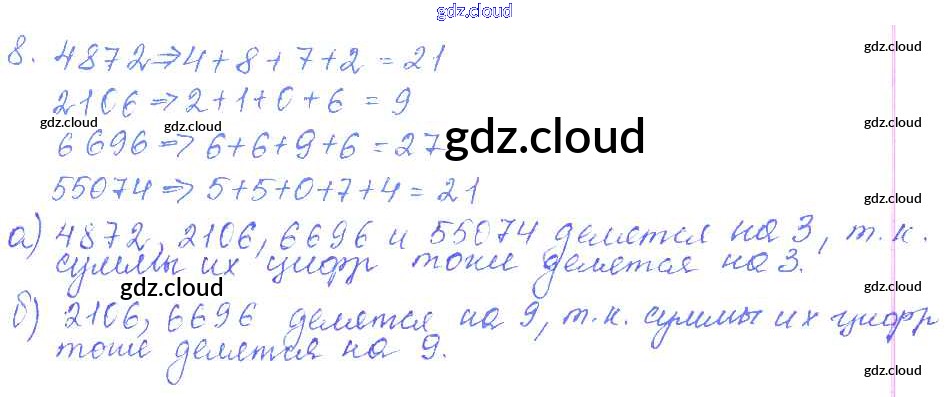 gdz.cloud
8. 4872 ⇒ 4+8+7+2 = 21
gdz.cloud
2106 ⇒ 2+1+0+6 = 9
gdz.cloud gdz.cloud gdz.cloud
6696 ⇒ 6+6+9+6 = 27
gdz.cloud
55074 ⇒ 5+5+0+7+4 = 21
gdz.cloud
а) 4872, 2106, 6696 и 55074 делятся на 3, т.к.
gdz.cloud
суммы их цифр тоже делятся на 3.
gdz.cloud gdz.cloud
б) 2106, 6696 делятся на 9, т.к. суммы их цифр
тоже делятся на 9.
gdz.cloud